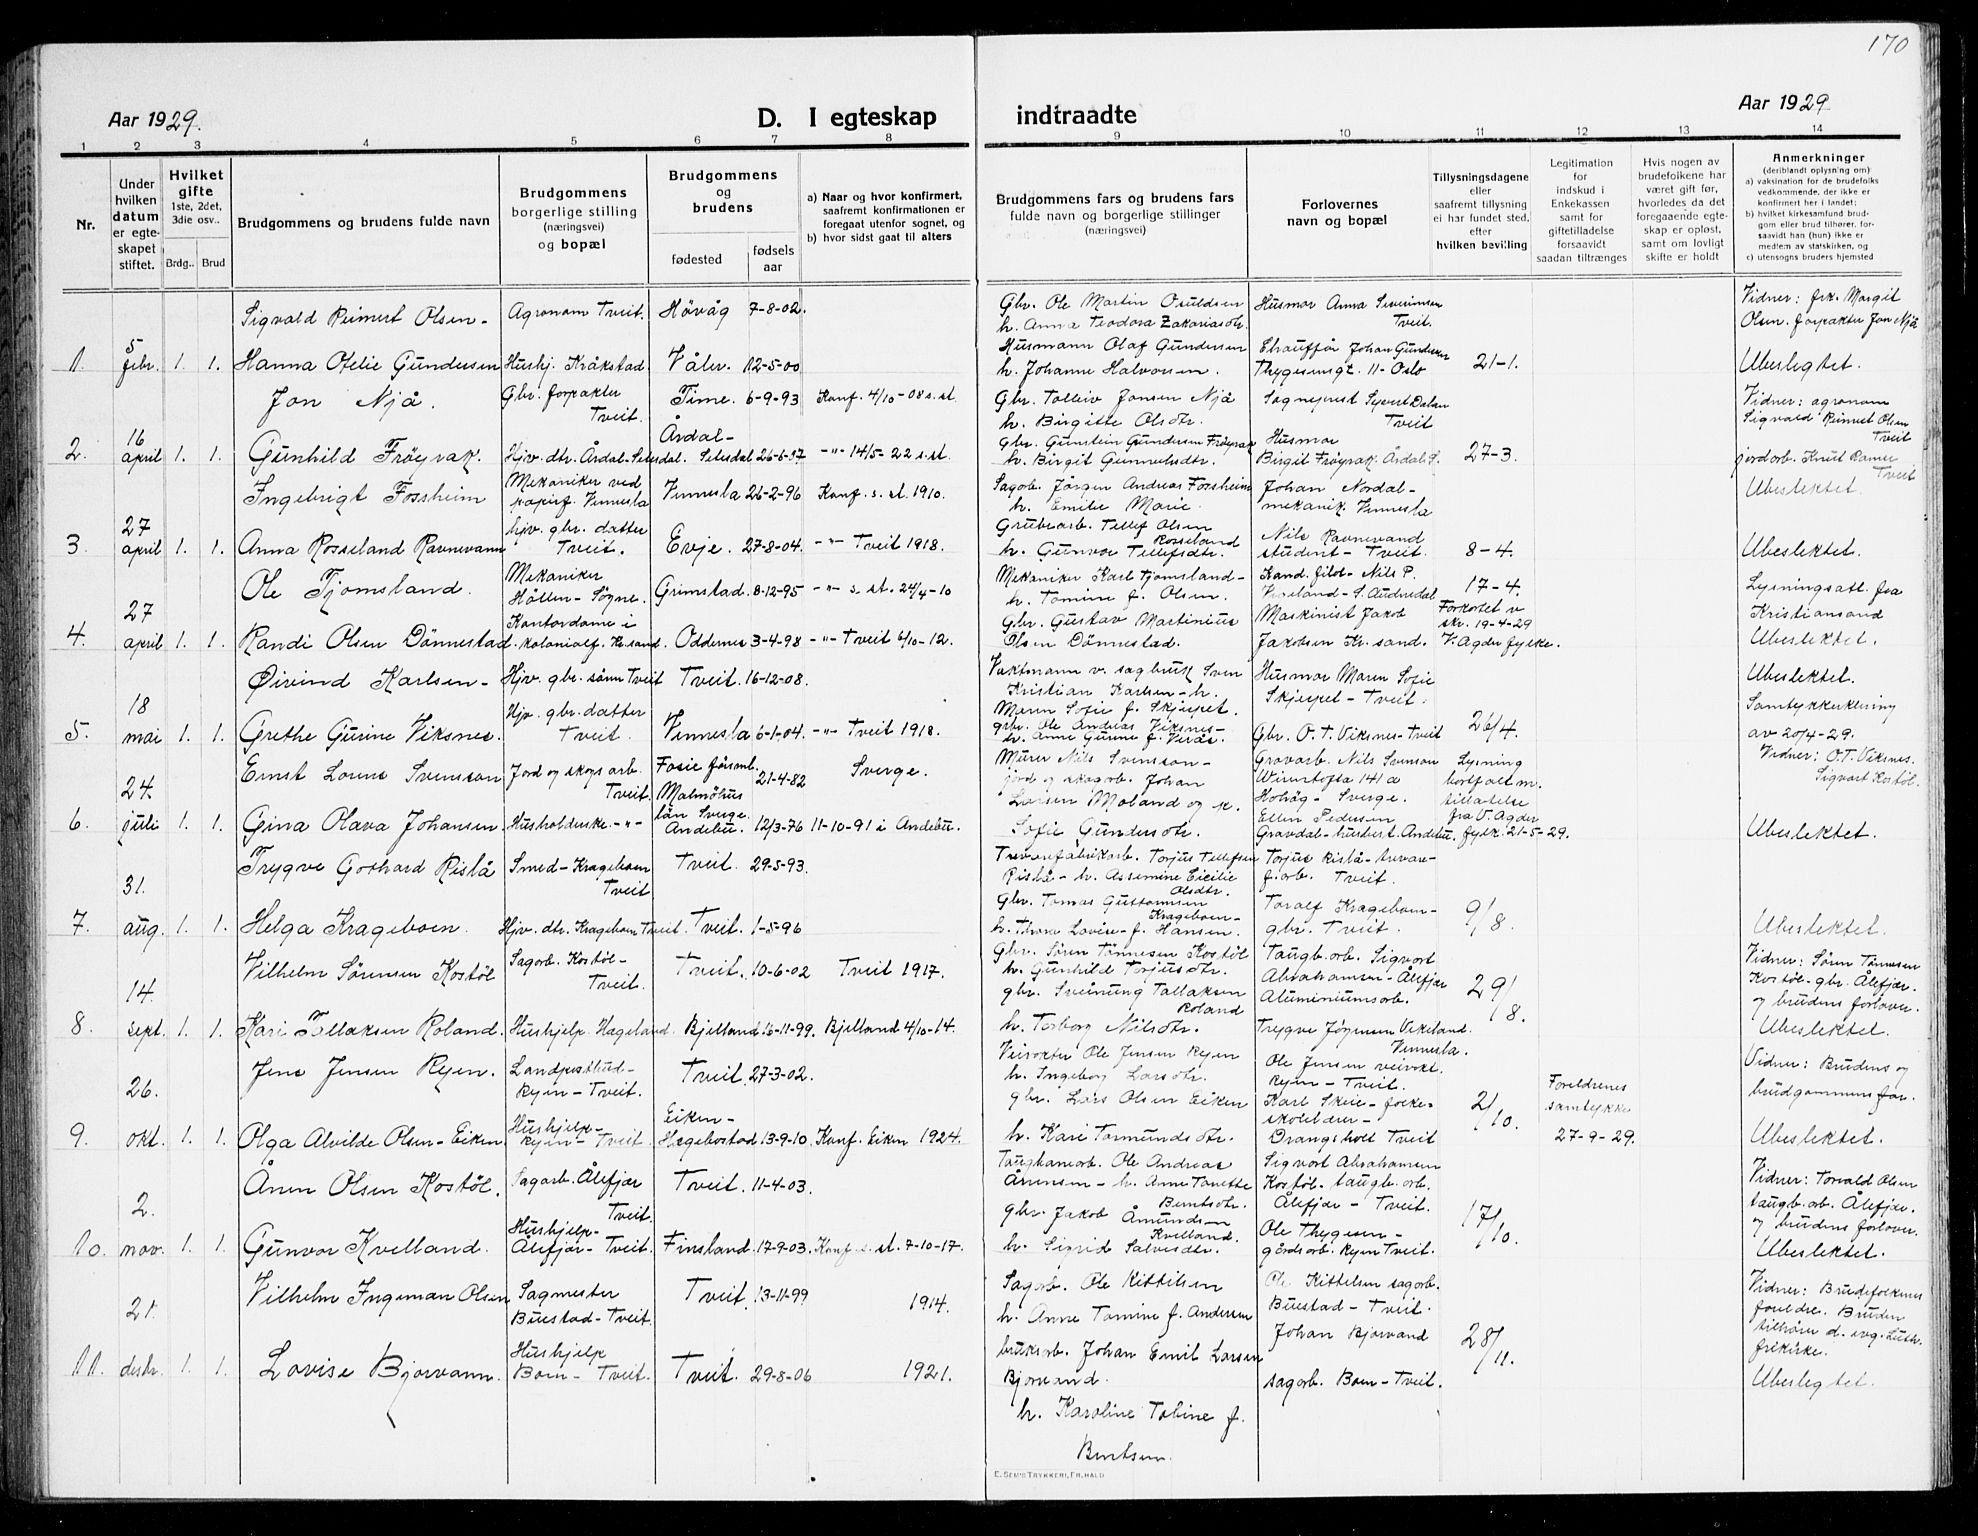 170
Aar 1929.
D. I egteskap indtraadte
Aar 1929
1 2 3 4 5 6 7 8 9 10 11 12 13 14
Nr.
Under hvilken datum er egteskapet stiftet.
Hvilket gifte 1ste, 2det, 3die osv..
Brdg.. Brud
Brudgommens og brudens fulde navn
Brudgommens borgerlige stilling (næringsvei) og bopæl
Brudgommens og brudens
fødested
fødsels aar
a) Naar og hvor konfirmert, saafremt konfirmationen er foregaat utenfor sognet, og
b) hvor sidst gaat til alters
Brudgommens fars og brudens fars fulde navn og borgerlige stillinger (næringsvei)
Forlovernes navn og bopæl
Tillysningsdagene eller saafremt tillysning ei har fundet sted, efter hvilken bevilling
Legitimation for indskud i Enkekassen samt for giftetilladelse forsaavidt saadan tiltrænges
Hvis nogen av brudefolkene har været gift før, hvorledes da det foregaaende egteskap er opløst, samt om lovligt skifte er holdt
Anmerkninger (deriblandt oplysning om)
a) vaksination for de brudefolks vedkommende, der ikke er konfirmert her i landet;
b) hvilket kirkesamfund brudgom eller brud tilhører, forsaavidt han (hun) ikke er medlem av statskirken, og
c) utensogns bruders hjemsted
Sigvald Reinert Olsen - Agronom Tveit. Høvåg 7-8-02. Gbr. Ole Martin Osuldsen Husmor Anna Severinsen Vidner: frk. Margit
h. Anna Teodora Zakariasdtr. Tveit. Olsen. forpakter Jon Njå
5 Husmann Olaf Gundersen Chauffør Johan Gundersen
1. febr. 1. 1. Hanna Otelie Gundersen Hushj. Kråkstad Våler. 12-5-00 h. Johanne Halvorsen. Thygesensgt. 11- Oslo 21-1. Ubeslegtet.
Jon Njå. Gbr. forpakter Tveit. Time. 6-9-93 Konf. 4/10-08 s. st. Gbr. Tolleiv Jonsen Njå Sogneprest Syvert Dalan Tveit Vidner: agronom
h. Birgitte Olsdtr. Sigvald Reinert Olsen Tveit
16 Årdal- Gbr. Gunstein Gundersen Frøysak Husmor
2. april 1. 1. Gunhild Frøysak. Hjv. dtr. Årdal-Setesdal. Setesdal 26-6-97 -"- 14/5-22 s. st. h. Birgit Gunnulsdtr. Birgit Frøysak. Årdal S. 27-3. jordarb. Knut Ramse Tveit
Ingebrigt Fossheim Mekaniker ved papirf. Vennesla Vennesla 26-2-96 Konf. s. st. 1910. Sagarb. Jørgen Andreas Fossheim Johan Nordal- Ubeslektet.
h. Emilie Marie. mekanik. Vennesla
27 hjv. gbr. datter Grubearb. Tellef Olsen Rosseland Nils Ravnevand
3. april 1. 1. Anna Rosseland Ravnevann Tveit. Evje. 27-8-04. -"- Tveit 1918. h. Gunvor Tellefsdtr. student - Tveit. 8-4. Ubeslektet.
Ole Tjomsland. Mekaniker Høllen - Søgne. Grimstad. 8-12-95 -"- s. st. 24/4-10 Mekaniker Karl Tjomsland - Kand. filol - Nils P. 17-4. Lysningsatt. fra
h. Tomine f. Olsen. S. Audnedal Forkortet v Kristiansand
27 Kontordame i Gbr. Gustav Martinius Maskinist Jakob skr. 19-4-29
4. april 1. 1. Randi Olsen Dønnestad. kolonialf. Kr.sand. Oddernes 3-4-98 -"- Tveit 6/10-12. Olsen Dønnestad. Jakobsen Kr. sand. V. Agder fylke. Ubeslektet.
Øivind Karlsen - Hjv. gbr. sønn Tveit Tveit. 16-12-08. Vaktmann v. sagbruk Sven Husmor Maren Sofie Ubeslektet.
Kristian Karlsen - h. Skjerpet - Tveit.
18 Hjv. gbr. datter Maren Sofie f. Skjerpet. Samtykkerklering
5. mai 1. 1. Grethe Gurine Viksnes. Tveit. Vennesla 6-1-04. -"- Tveit 1918. gbr. Ole Andreas Viksnes - Gbr. O. T. Viksnes - Tveit 26/4. av 20/4-29.
h. Anne Gurine f. Verås.
Ernst Lorens Svensson Jord og skogsarb. Tveit. Fosie församl. Malmöhus län Sverge. 21-4-82 Sverge. Murer Nils Svensson - Gravarb. Nils Svenson Lysning Vidner: O. T. Viksnes.
24. jord og skogarb. Johan 141 a bortfalt m. Sigvart Kostøl.
Larsen Moland og h. Sverge. tillatelse
6. juli 1. 1. Gina Olava Johansen. Husholderske - "- Andebu. 12/3-76 11-10-91 i Andebu. Sofie Gundersdtr. Ellen Pedersen Gravdal - husbest. Andebu. fra V. Agder fylk. 21-5-29. Ubeslektet.
Trygve Gothard Rislå Smed - Krageboen Tveit Tveit. 29-5-93. Trevarefabrikarb. Torjus Tellefsen Torjus Rislå - trevare-
Rislå - h. Assemine Cicilie Olsdtr. f. arb. Tveit.
31. Gbr. Tomas Gustavmsen Krageboen - Toralf Krageboen -
7. aug. 1. 1. Helga Krageboen. Hjv. dtr. Krageboen Tveit. Tveit. 1-5-96 h. Thora Lovise f. Hansen. gbr. Tveit. 9/8. Ubeslektet.
Vilhelm Sørensen Kostøl Sagarb. Kostøl - Tveit. Tveit. 10-6-02 Tveit 1917. Gbr. Søren Tønnesen Kostøl Taugb. arb. Sigvart Vidner: Søren Tønnesen
h. Gunhild Torjusdtr. Abrahamsen - Ålefjær Kostøl - gbr. Ålefjær.
14. gbr. Sveinung Tallaksen Roland Aluminiumsarb. 29/8. og brudens forlover.
8. sept. 1. 1. Kari Tallaksen Roland. Hushjelp. Hageland. Bjelland. 16-11-99. Bjelland 4/10-14. h. Torborg Nilsdtr. Trygve Jørgensen Vikeland. Vennesla. Ubeslektet.
Jens Jensen Ryen. Landpostbud - Ryen - Tveit. Tveit. 27-3-02. Veivokter Ole Jensen Ryen Ole Jensen veivokt. Vidner: Brudens og
h. Ingeborg Larsdtr. Ryen - Tveit. Foreldrenes brudgommens far.
26. Hushjelp - Eiken - gbr. Lars Olsen Eiken Karl Skeie - folke- 2/10. samtykke
9. okt. 1. 1. Olga Alvilde Olsen - Eiken Ryen - Tveit. Hægebostad 13-9-10. Konf. Eiken 1924. h. Kari Tormundsdtr. skolelærer - Drangsholt Tveit 27-9-29. Ubeslektet.
Ånen Olsen Kostøl. Sagarb. Ålefjær Tveit. Tveit. 11-4-03. Taugbanearb. Ole Andreas Sigvart Abrahamsen Vidner: Torvald Olsen
Ånensen - h. Anne Tonette Berntsdtr. Kostøl - taugb. arb. taugb. arb. Ålefjær.
2. Hushjelp - gbr. Jakob Åmundsen Kvelland. Ålefjær - Tveit. 17/10. og brudens forlover.
10. nov. 1. 1. Gunvor Kvelland. Ålefjær - Tveit. Finsland 17-9-03. Konf. s. st. 7-10-17. h. Sigrid Salvesdtr. Ole Thygesen - gårdsarb. Ryen Tveit. Ubeslektet.
Vilhelm Ingeman Olsen Sagmester Buestad - Tveit. Tveit. 13-11-99 1914. Sagarb. Ole Kittilsen Ole Kittelsen sagarb. Vidner: Brudefolkenes
21. h. Anne Tomine f. Andersen Buestad - Tveit. foreldre. Bruden
Hushjelp bruksarb. Johan Emil Larsen Johan Bjorvand 28/11. tilhører d. evg. Luth. frikirke.
11. desbr. 1. 1. Lovise Bjorvann. Boen - Tveit. Tveit. 29-8-06 1921. Bjorvand. sagarb. Boen - Tveit. Ubeslegtet.
h. Karoline Tobine f.
Berntsen.
E. SEM'S TRYKKERI, FR.HALD